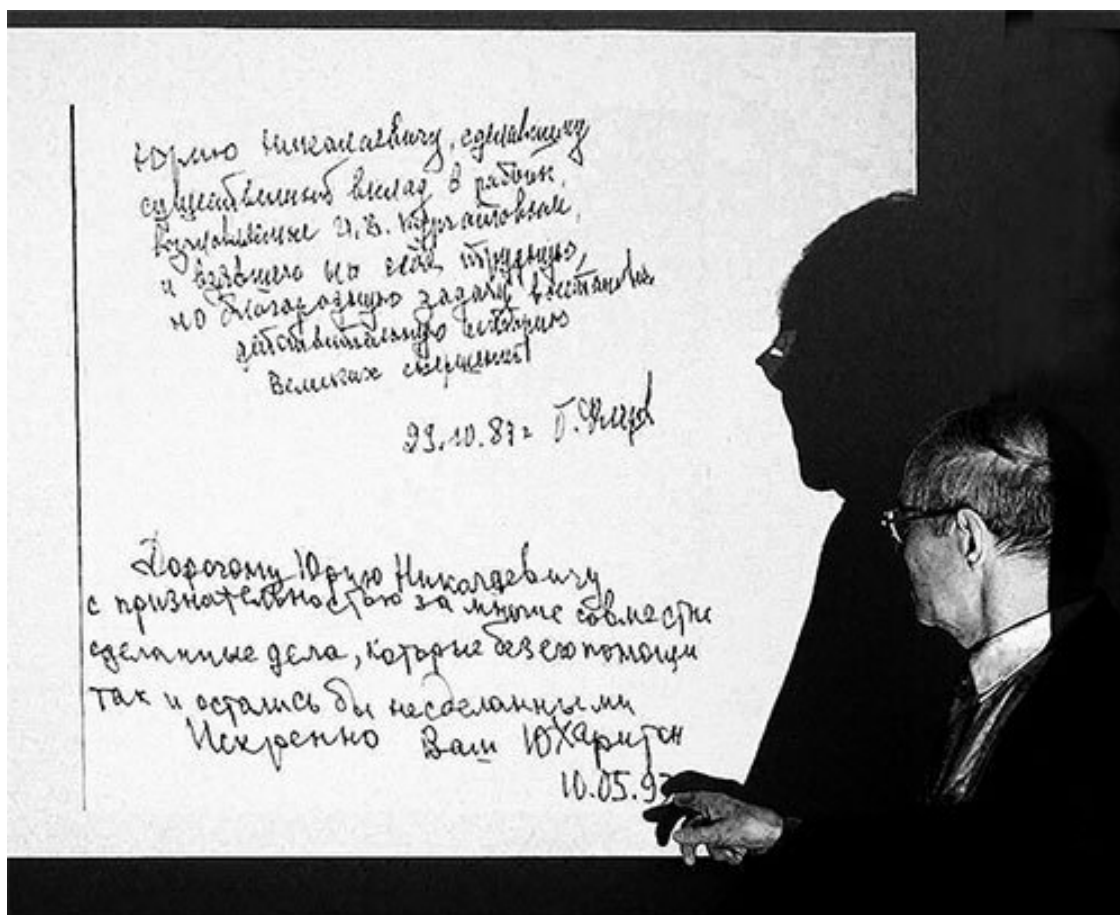 Юрию Николаевичу, сделавшему
существенный вклад в работы,
возглавлённые И.В. Курчатовым,
и взявшего на себя трудную,
но благородную задачу восстановить
действительную историю
Великих свершений
29.10.87г
Дорогому Юрию Николаевичу
с признательностью за многие совместно
сделанные дела, которые без его помощи
так и остались бы несделанными
Искренно Ваш ЮХаритон
10.05.93